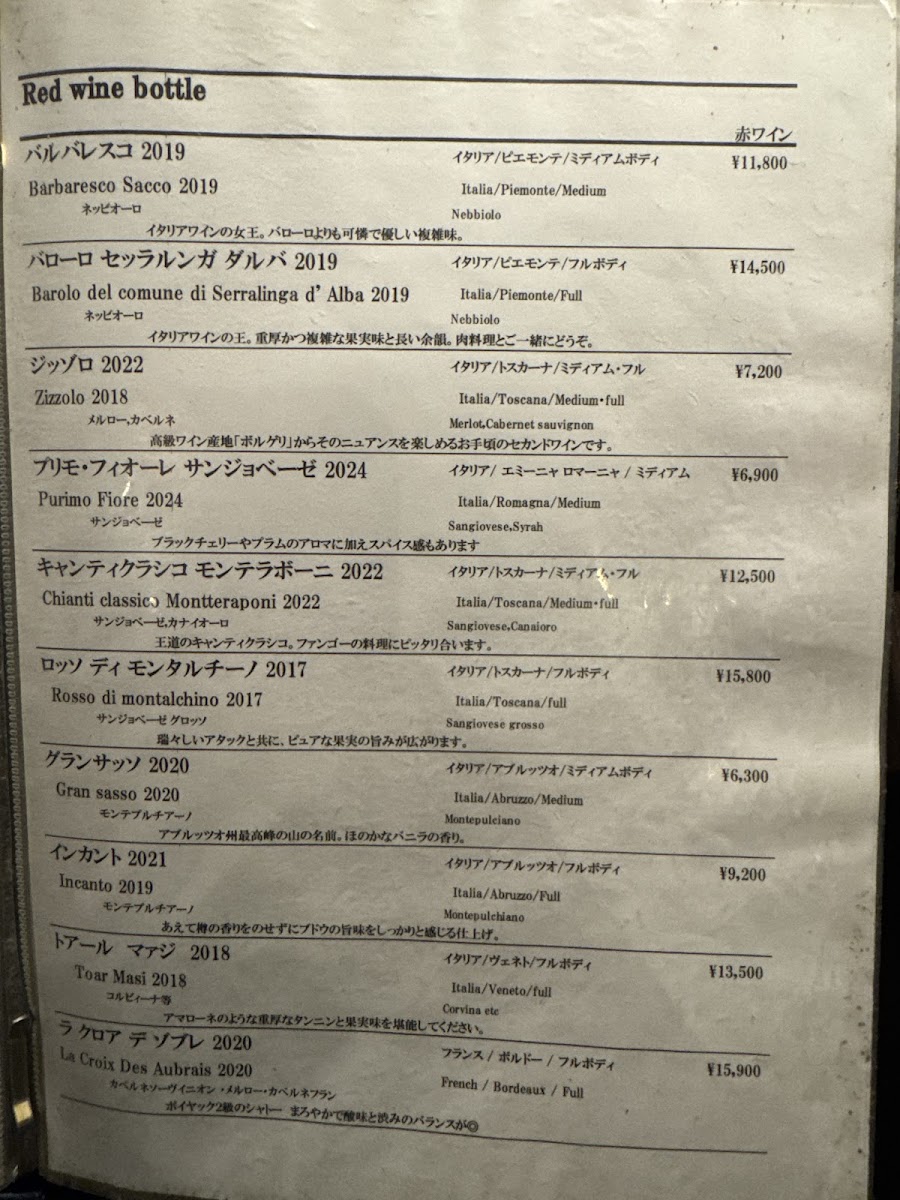 Red wine bottle
赤ワイン
バルバレスコ 2019 イタリア/ピエモンテ/ミディアムボディ ¥11,800
Barbaresco Sacco 2019 Italia/Piemonte/Medium
ネッビオーロ Nebbiolo
イタリアワインの女王。バローロよりも可憐で優しい複雑味。
バローロ セッラルンガ ダルバ 2019 イタリア/ピエモンテ/フルボディ ¥14,500
Barolo del comune di Serralinga d' Alba 2019 Italia/Piemonte/Full
ネッビオーロ Nebbiolo
イタリアワインの王。重厚かつ複雑な果実味と長い余韻。肉料理とご一緒にどうぞ。
ジッゾロ 2022 イタリア/トスカーナ/ミディアム・フル ¥7,200
Zizzolo 2018 Italia/Toscana/Medium・full
メルロー,カベルネ Merlot,Cabernet sauvignon
高級ワイン産地「ボルゲリ」からそのニュアンスを楽しめるお手頃のセカンドワインです。
プリモ・フィオーレ サンジョベーゼ 2024 イタリア/ エミーニャ ロマーニャ / ミディアム ¥6,900
Purimo Fiore 2024 Italia/Romagna/Medium
サンジョベーゼ Sangiovese,Syrah
ブラックチェリーやプラムのアロマに加えスパイス感もあります
キャンティクラシコ モンテラボーニ 2022 イタリア/トスカーナ/ミディアム・フル ¥12,500
Chianti classico Montteraponi 2022 Italia/Toscana/Medium・full
サンジョベーゼ,カナイオーロ Sangiovese,Canaioro
王道のキャンティクラシコ。ファンゴーの料理にピッタリ合います。
ロッソ ディ モンタルチーノ 2017 イタリア/トスカーナ/フルボディ ¥15,800
Rosso di montalchino 2017 Italia/Toscana/full
サンジョベーゼ グロッソ Sangiovese grosso
瑞々しいアタックと共に、ピュアな果実の旨みが広がります。
グランサッソ 2020 イタリア/アブルッツオ/ミディアムボディ ¥6,300
Gran sasso 2020 Italia/Abruzzo/Medium
モンテプルチアーノ Montepulciano
アブルッツオ州最高峰の山の名前。ほのかなバニラの香り。
インカント 2021 イタリア/アブルッツオ/フルボディ ¥9,200
Incanto 2019 Italia/Abruzzo/Full
モンテプルチアーノ Montepulchiano
あえて樽の香りをのせずにブドウの旨味をしっかりと感じる仕上げ。
トアール マァジ 2018 イタリア/ヴェネト/フルボディ ¥13,500
Toar Masi 2018 Italia/Veneto/full
コルビィーナ等 Corvina etc
アマローネのような重厚なタンニンと果実味を堪能してください。
ラ クロア デ ゾブレ 2020 フランス / ボルドー / フルボディ ¥15,900
La Croix Des Aubrais 2020 French / Bordeaux / Full
カベルネソーヴィニオン・メルロー・カベルネフラン
ポイヤック2級のシャトー まろやかで酸味と渋みのバランスが◎